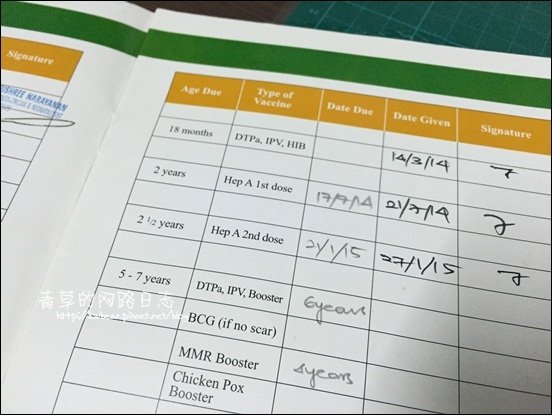 Signature
Age Due Type of Vaccine Date Due Date Given Signature
18 months DTPa, IPV, HIB 14/3/14
2 years Hep A 1st dose 17/7/14 21/7/14
2 1/2 years Hep A 2nd dose 21/1/15 27/1/15
5 - 7 years DTPa, IPV, Booster 6years
BCG (if no scar)
MMR Booster 4years
Chicken Pox Booster
青草的网路日志